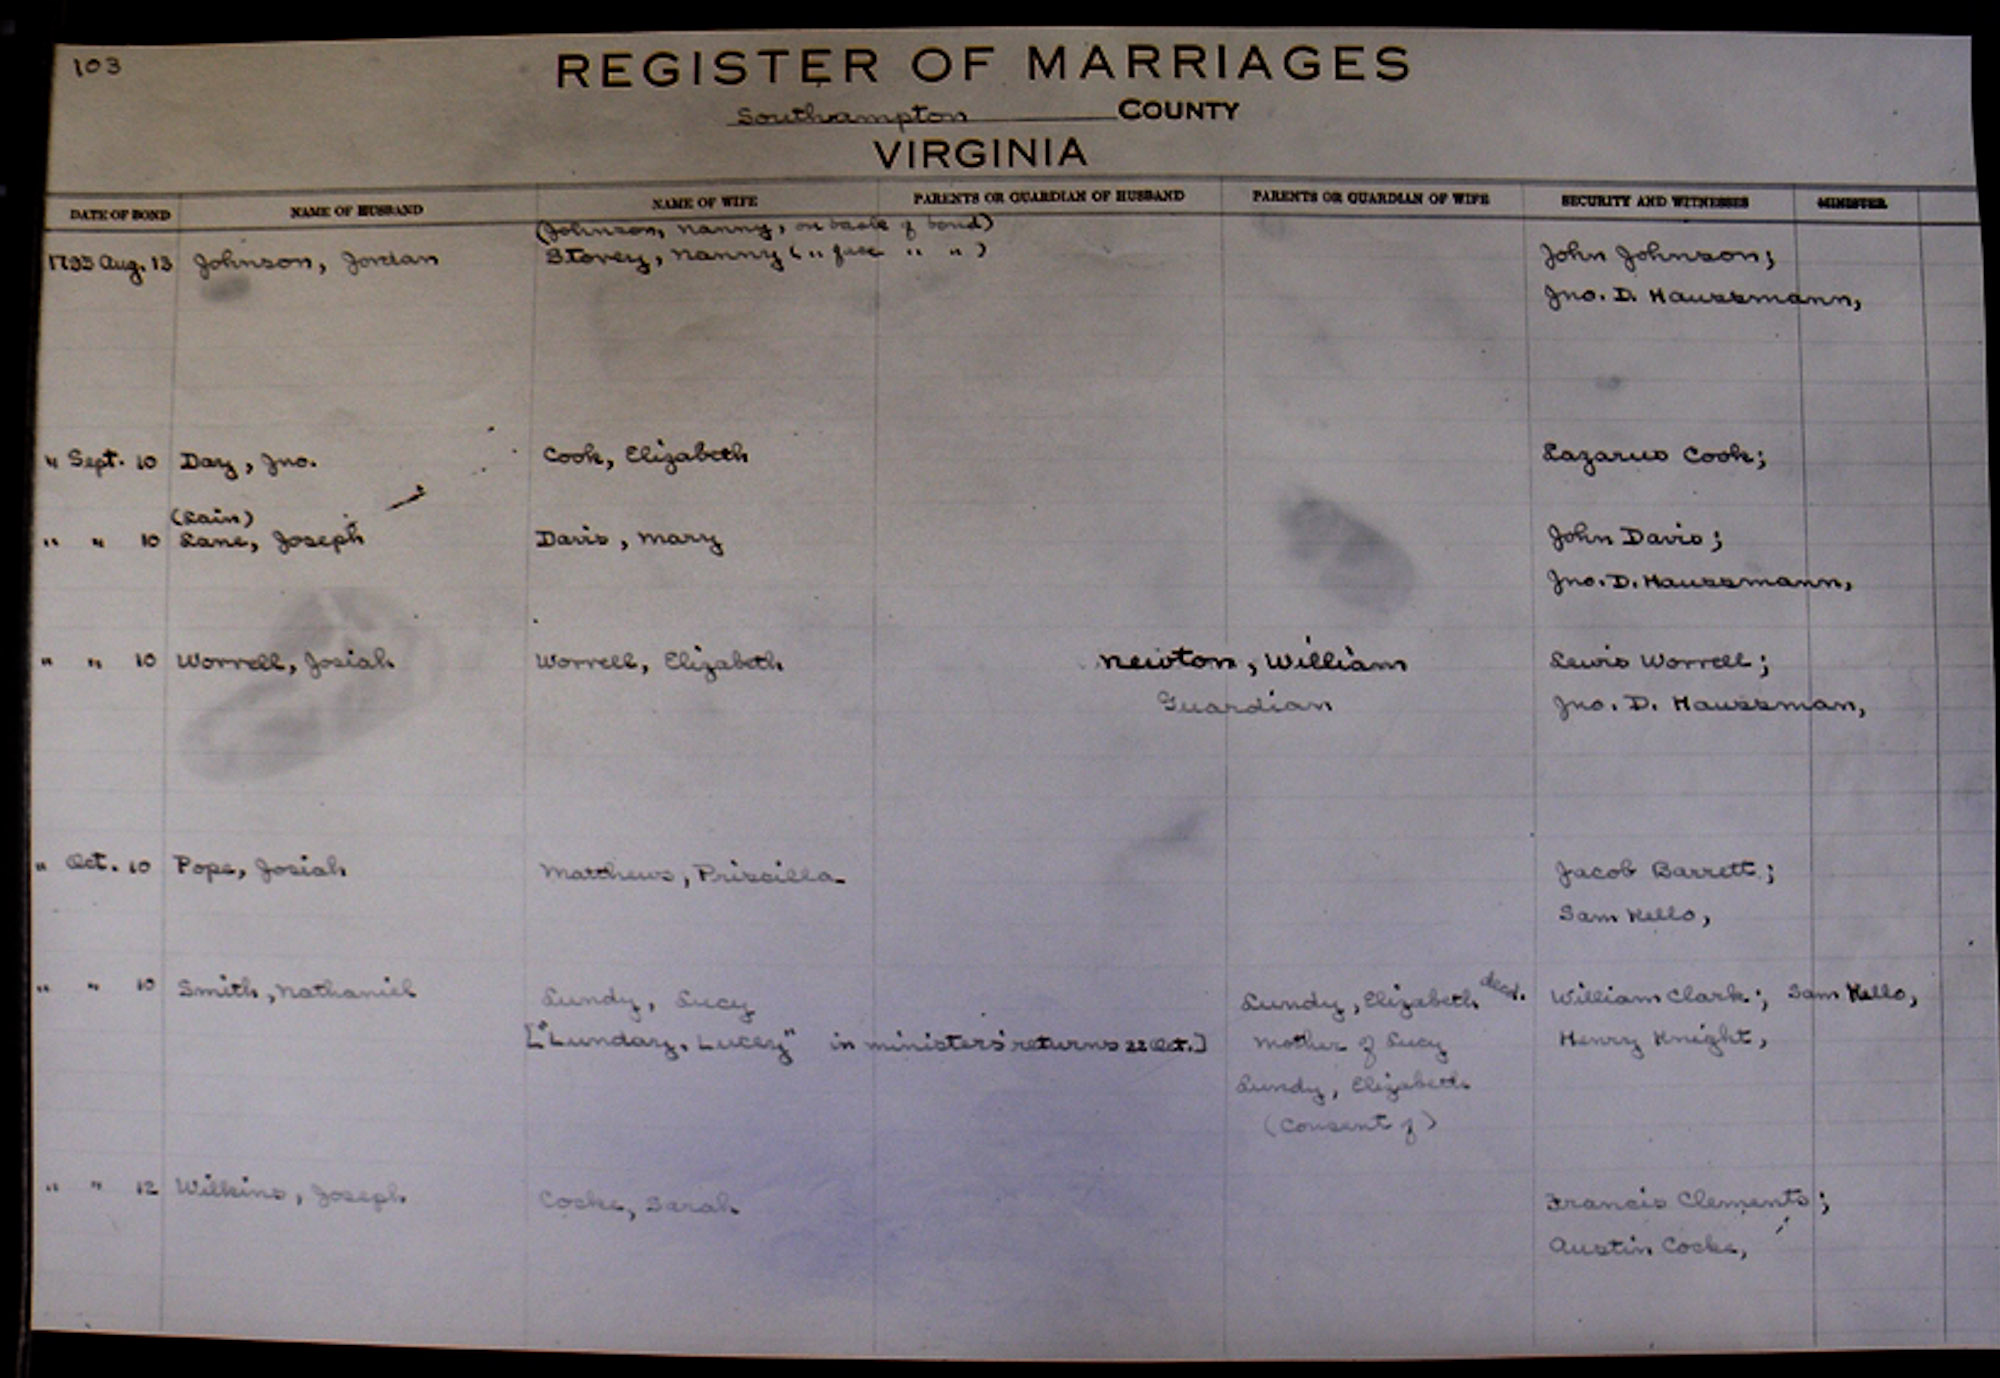 103
REGISTER OF MARRIAGES
Southampton COUNTY
VIRGINIA
DATE OF BOND NAME OF HUSBAND NAME OF WIFE PARENTS OR GUARDIAN OF HUSBAND PARENTS OR GUARDIAN OF WIFE SECURITY AND WITNESSES MINISTER
(Johnson, Nanny, on back of bond)
1793 Aug. 13 Johnson, Jordan Storey, Nanny ( " face " " ) John Johnson;
Jno. D. Haussmann,
" Sept. 10 Day, Jno. Cook, Elizabeth Lazarus Cook;
(Lain)
" " 10 Lane, Joseph Davis, Mary John Davis;
Jno. D. Haussmann,
" " 10 Worrell, Josiah Worrell, Elizabeth Newton, William Lewis Worrell;
Guardian Jno. D. Haussman,
" Oct. 10 Pope, Josiah Matthews, Priscilla Jacob Barrett;
Sam Kello,
" " 10 Smith, Nathaniel Lundy, Lucy Lundy, Elizabeth decd. William Clark; Sam Kello,
["Lunday, Lucey" in ministers' returns 22 Oct.] Mother of Lucy Henry Knight,
Lundy, Elizabeth
(Consent of)
" " 12 Wilkins, Joseph Cocke, Sarah Francis Clements;
Austin Cocke,